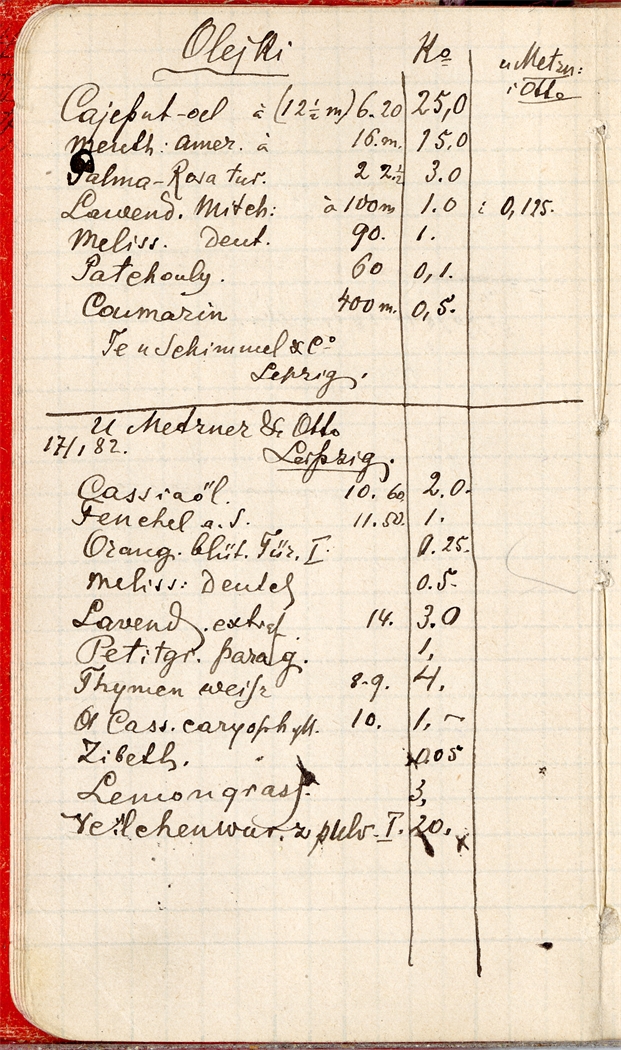 Olejki Ko u Metzn:
i Otto
Cajeput-oel à (12½ m) 6.20 25,0
Menth: amer. à 16.m. 15,0
Palma-Rosa tur. 22½ 3.0
Lawend. Mitch: à 100m 1.0 : 0,125.
Meliss. Deut. 90. 1.
Patchouly. 60 0,1.
Coumarin 400 m. 0,5.
Te u Schimmel & Co
Leipzig.
U Metzner & Otto
17/1 82. Leipzig.
Cassiaöl. 10. 60 2.0.
Fenchel a.S. 11.50. 1.
Orang. blüt. Tür. I. 0.25.
Meliss: Deutsch 0.5.
Lavend. extraf. 14. 3.0
Petitgr. parag. 1,
Thymen weiss 8-9. 4.
Ol Cass. caryophyll. 10. 1,-
Zibeth. 0.05
Lemongrass. 3,
Veilchenwurz pulv. I. 20.